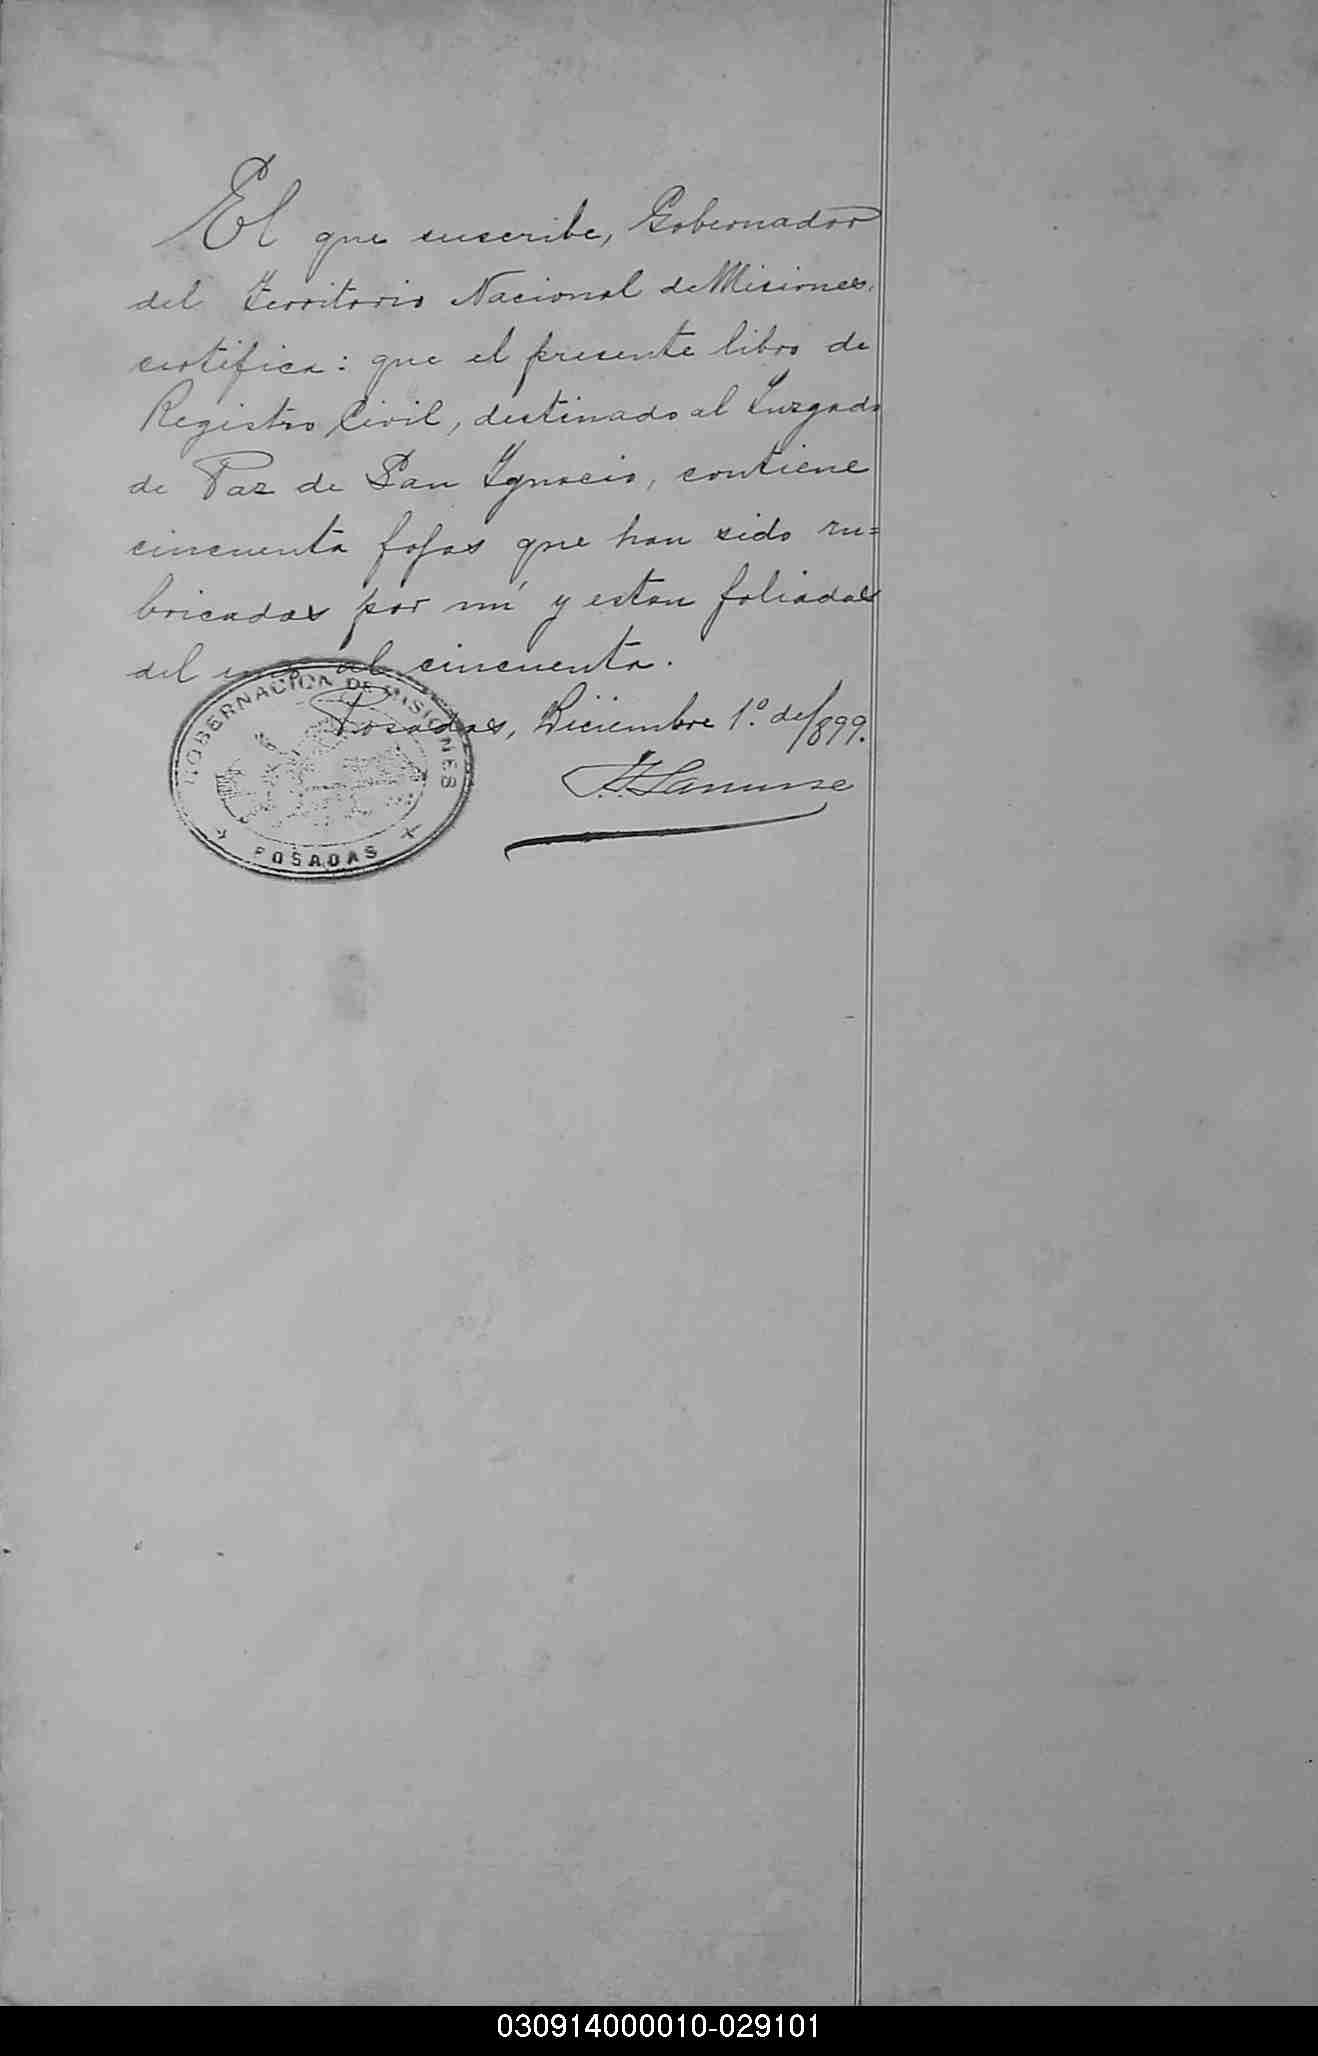 El que suscribe, Gobernador
del Territorio Nacional de Misiones,
certifica: que el presente libro de
Registro Civil, destinado al Juzgado
de Paz de San Ignacio, contiene
cincuenta fojas que han sido ru=
bricadas por mí y estan foliadas
del uno al cincuenta.
Posadas, Diciembre 1º de/899.
Lanusse
GOBERNACION DE MISIONES
POSADAS
030914000010-029101